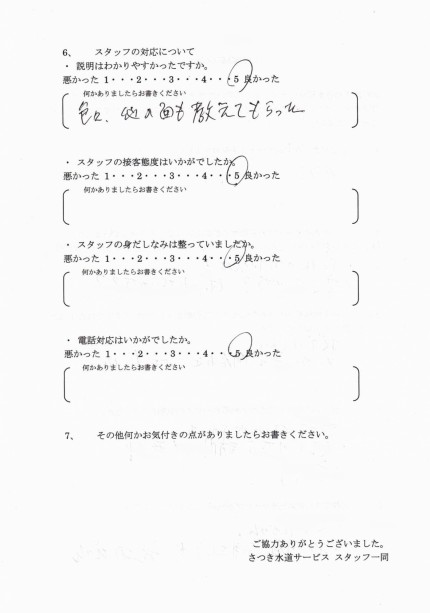 6、 スタッフの対応について
・ 説明はわかりやすかったですか。
悪かった 1・・・2・・・3・・・4・・・5 良かった
何かありましたらお書きください
色々、他の面も教えてもらった
・ スタッフの接客態度はいかがでしたか。
悪かった 1・・・2・・・3・・・4・・・5 良かった
何かありましたらお書きください
・ スタッフの身だしなみは整っていましたか。
悪かった 1・・・2・・・3・・・4・・・5 良かった
何かありましたらお書きください
・ 電話対応はいかがでしたか。
悪かった 1・・・2・・・3・・・4・・・5 良かった
何かありましたらお書きください
7、 その他何かお気付きの点がありましたらお書きください。
ご協力ありがとうございました。
さつき水道サービス スタッフ一同